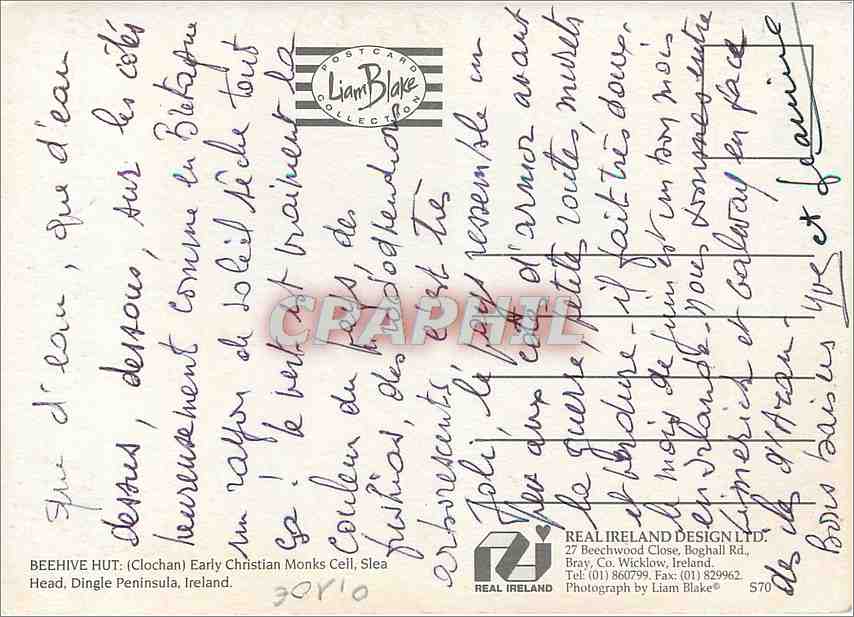 que d'eau, que d'eau
dessus, dessous, sur les côtés
heureusement comme en Bretagne
un rayon de soleil sèche tout
ça! le vert est vraiment la
couleur du pays, des
fushias, des rhododendrons
arborescents, c'est très
Joli, le pays ressemble un
peu aux côtes d'armor avant
la guerre petites routes, murets
et verdure - il fait très doux.
le mois de juin est un bon mois
en Irlande - nous sommes entre
Limerick et Galway en face
des iles d'Aran -
Bons baisers Yves et Jeannine
POSTCARD
Liam Blake
COLLECTION
CPAPHIL
BEEHIVE HUT: (Clochan) Early Christian Monks Cell, Slea
Head, Dingle Peninsula, Ireland.
REAL IRELAND
REAL IRELAND DESIGN LTD.
27 Beechwood Close, Boghall Rd.,
Bray, Co. Wicklow, Ireland.
Tel: (01) 860799. Fax: (01) 829962.
Photograph by Liam Blake© S70